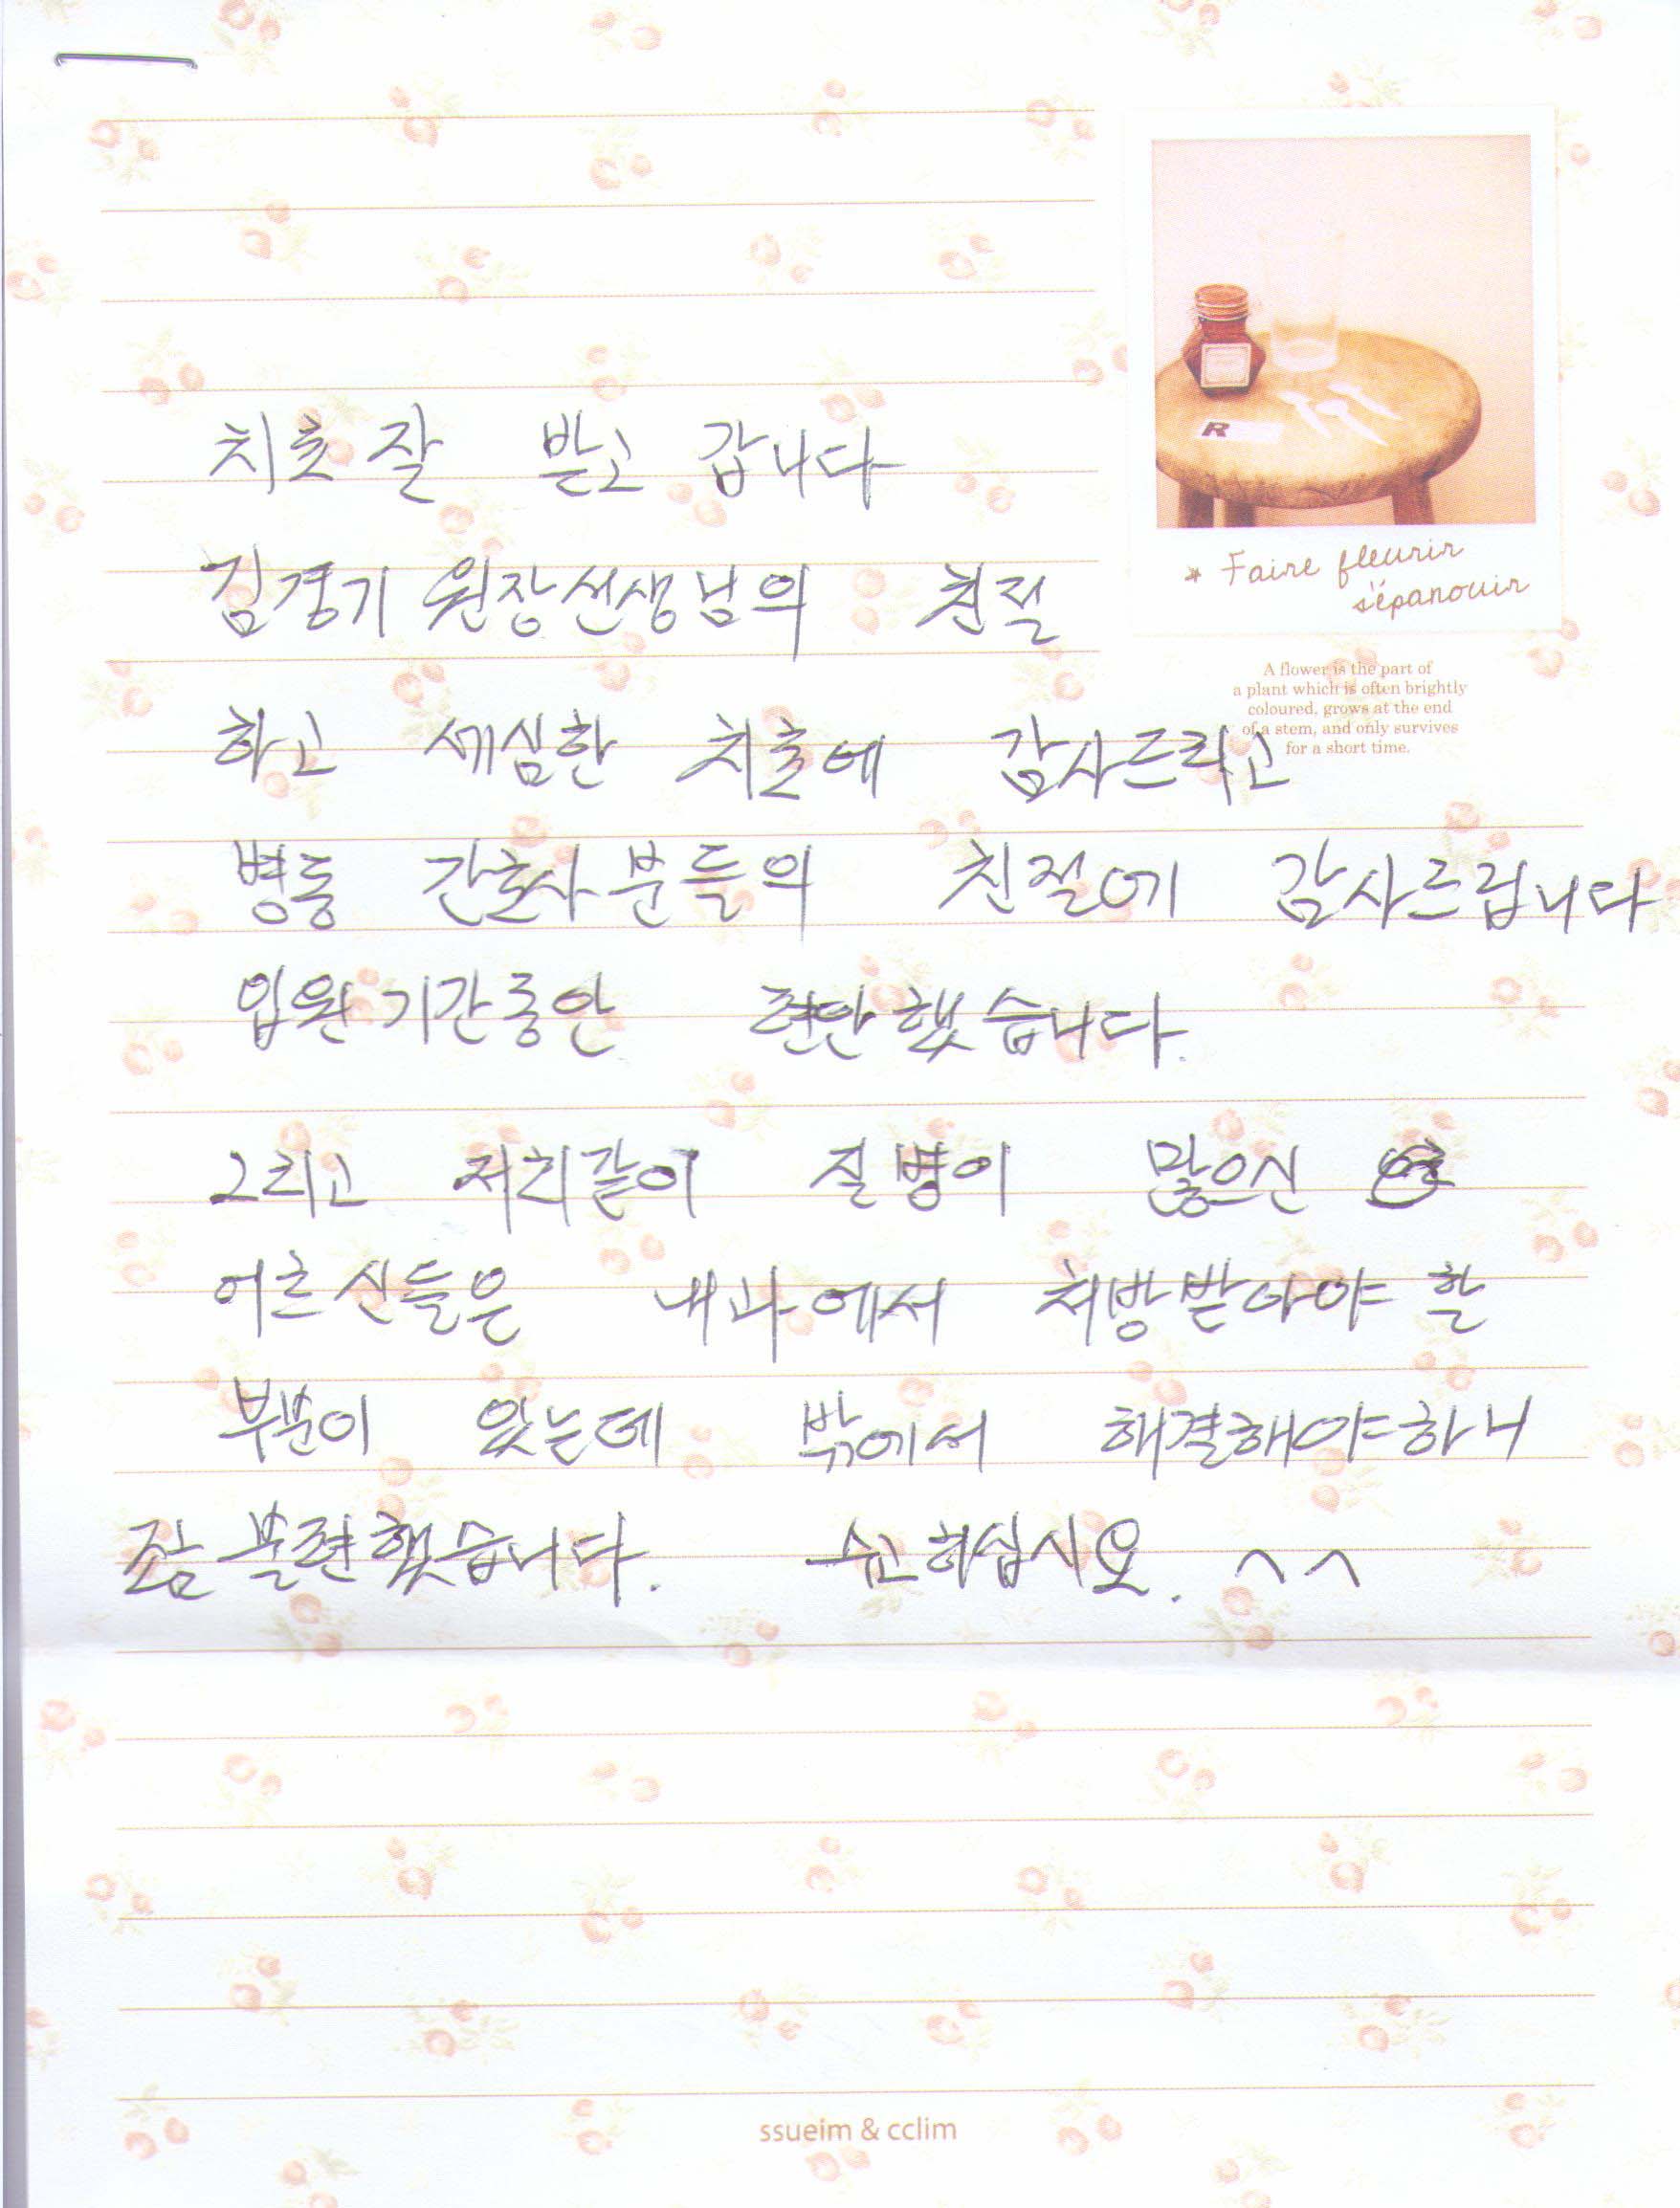 치료 잘 받고 갑니다
김경기 원장선생님의 친절
하고 세심한 치료에 감사드리고
병동 간호사분들의 친절에 감사드립니다
입원기간동안 편안했습니다.
그리고 저희같이 질병이 많으신
어르신들은 내과에서 처방받아야 할
부분이 있는데 밖에서 해결해야하니
조금 불편했습니다. 수고하십시오. ^^
* Faire fleurir
s'épanouir
A flower is the part of
a plant which is often brightly
coloured, grows at the end
of a stem, and only survives
for a short time.
R
ssueim & cclim